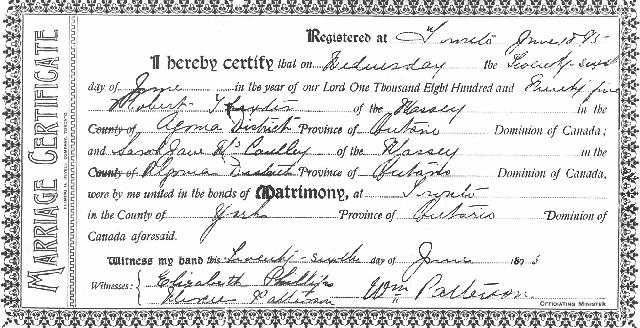 MARRIAGE CERTIFICATE
Registered at Toronto June 1895
I hereby certify that on Wednesday the Twenty-sixth
day of June in the year of our Lord One Thousand Eight Hundred and Ninety five
Robert of the Massey in the
County of Algoma District Province of Ontario Dominion of Canada;
and Sarah Jane McCaulley of the Massey in the
County of Algoma District Province of Ontario Dominion of Canada,
were by me united in the bonds of Matrimony, at Toronto
in the County of York Province of Ontario Dominion of
Canada aforesaid.
Witness my hand this Twenty-sixth day of June 1895
Witnesses: Elizabeth Phillips
Patterson Wm Patterson
OFFICIATING MINISTER